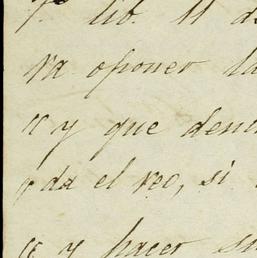 lib. 11 d
ra oponer la
y que den
da el reo, si
y hacer su